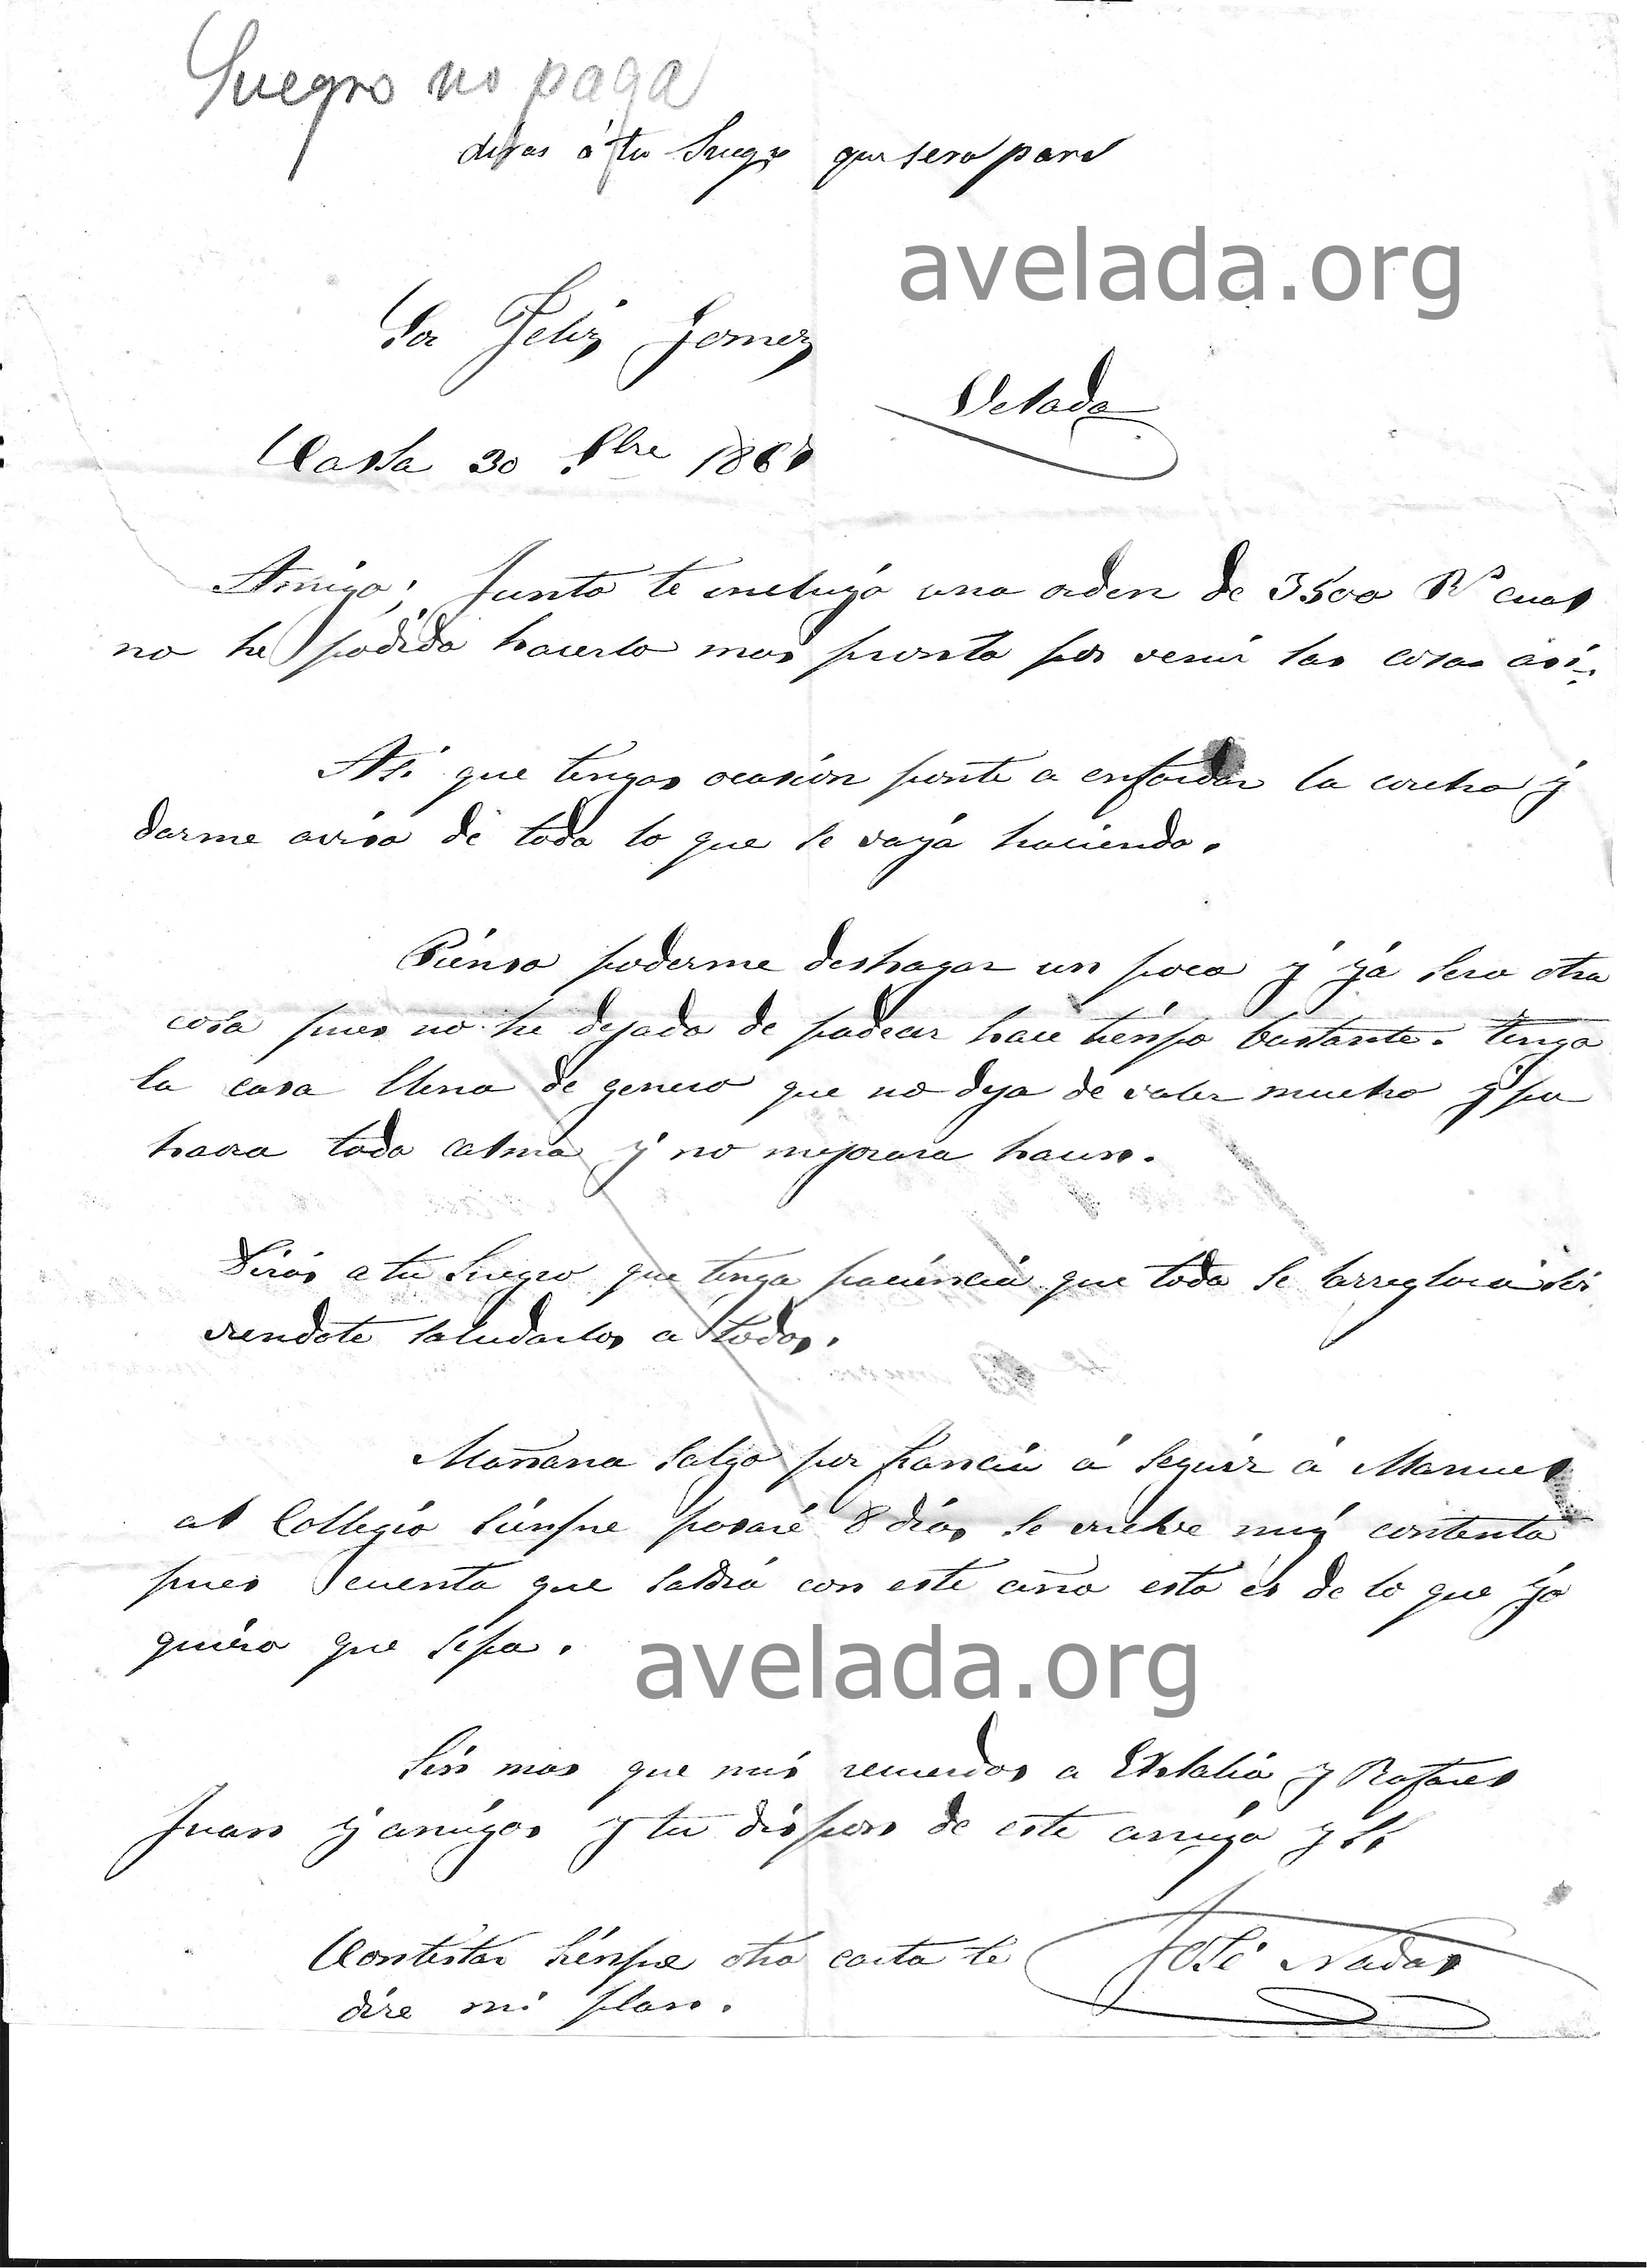 Suegro no paga
diras á tu Suegro que sera para
avelada.org
Sor Feliz Gomez
Velada
Cassa 30 Sbre
Amigo; Junto te incluyó una orden de 3500 Rs cual
no he podido hacerlo mas pronto por venir las cosas así.
Asi que tengas ocasión ponte a enfardar la corcha y
darme aviso de todo lo que se vayá haciendo.
Piénso poderme deshagar un poco y yá sera otra
cosa pues no he dejado de padecer hace tiémpo bastante. tengo
la casa llena de genero que no deja de valer mucho y
haora todo calma y no mejorara
Dirás a tu Suegro que tenga paciéncia que todo se arreglará
saludarlos a todos.
Mañana salgo por francia á seguir á Manuel
al Collegio siémpre pasaré 8 dias se vuelve muy contento
pues cuenta que saldrá con este año esto és de lo que yo
quiéro que sepa.
avelada.org
Sin mas que mis recuerdos a y Rafael
Juan y amigos y tu dispon de este amigo y SS
Contestar siémpre otra carta te
José Nadal
dire mi plan.